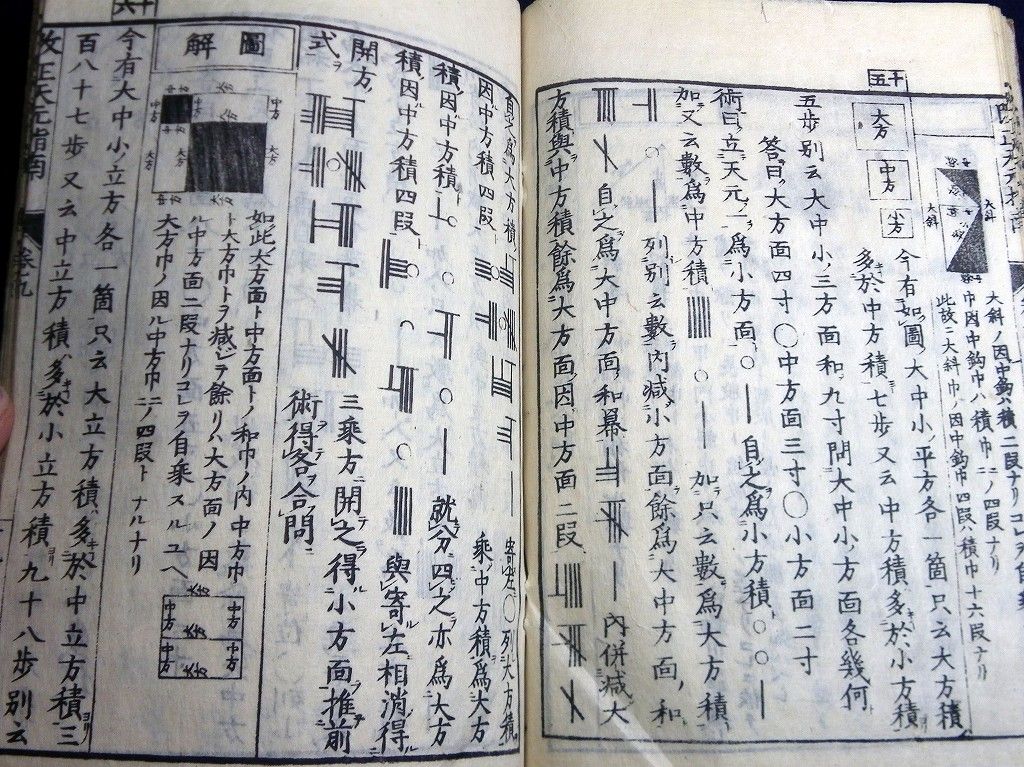 十五
大斜ノ因中鈎ハ積二段ナリ
巾因中鈎巾ハ積巾二ノ四段ナリ
此故ニ大斜巾ノ因中鈎巾四段ハ積巾十六段ナリ
大斜
大斜
大方
中方
小方
今有如圖大中小平方各一箇只云大方積
多於中方積七歩又云中方積多於小方積
五歩別云大中小三方面和九寸問大中小方面各幾何
答曰大方面四寸〇中方面三寸〇小方面二寸
術曰立天元一爲小方面〇｜自之爲小方積〇〇｜
加又云數爲中方積〇｜加只云數爲大方積
〇｜列別云數内減小方面餘爲大中方面和
自之爲大中方面和冪｜内併減大
方積與中方積餘爲大方面因中方面二段
自之爲大方積
因中方積四段｜寄左〇列大方積
乘中方積爲大方
積因中方積〇〇〇｜就分四之亦爲大方
積因中方積四段〇〇與寄左相消得
開方
式
三乘方開之得小方面推前
術得各合問
圖解
中方
大方
中方
大方
大方
如此大方面ト中方面トノ和巾ノ内中方巾
ト大方巾トヲ減シテ餘リハ大方面ノ因
ル中方面二段ナリコレヲ自乘スルユヘ
大方巾ノ因ル中方巾ニノ四段トナルナリ
中方
中方
大方
中方
中方
十六
今有大中小ノ立方各一箇只云大立方積多於中立方積三
百八十七歩又云中立方積多於小立方積九十八歩別云
改正天元指南
卷九